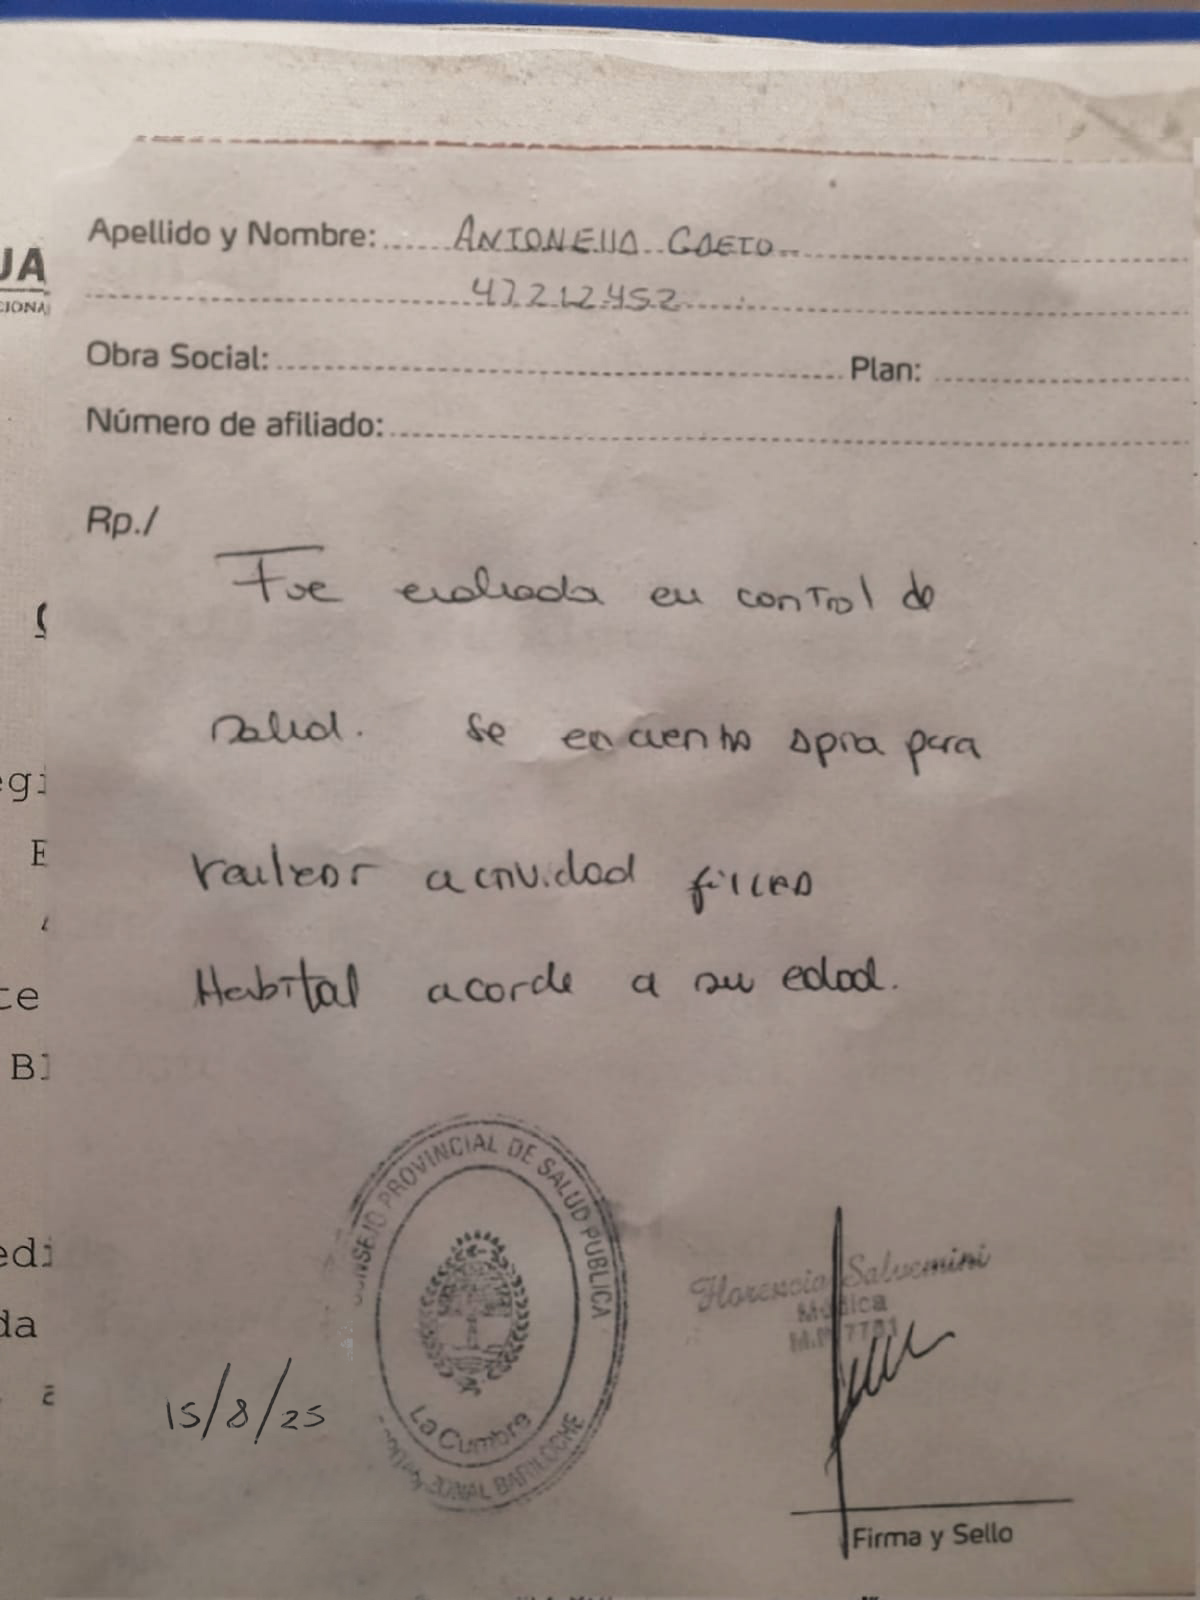 Apellido y Nombre: ANTONELLA GAETO
47212452
Obra Social: Plan:
Número de afiliado:
Rp./
Fue evaluada en control de
salud. Se encuentra apta para
realizar actividad física
Habitual acorde a su edad.
CONSEJO PROVINCIAL DE SALUD PUBLICA
La Cumbre
ZONAL BARILOCHE
Florencia Salvemini
Médica
M.P. 7701
15/8/25
Firma y Sello
UA
CIONA
egi
E
te
B
edi
da
a